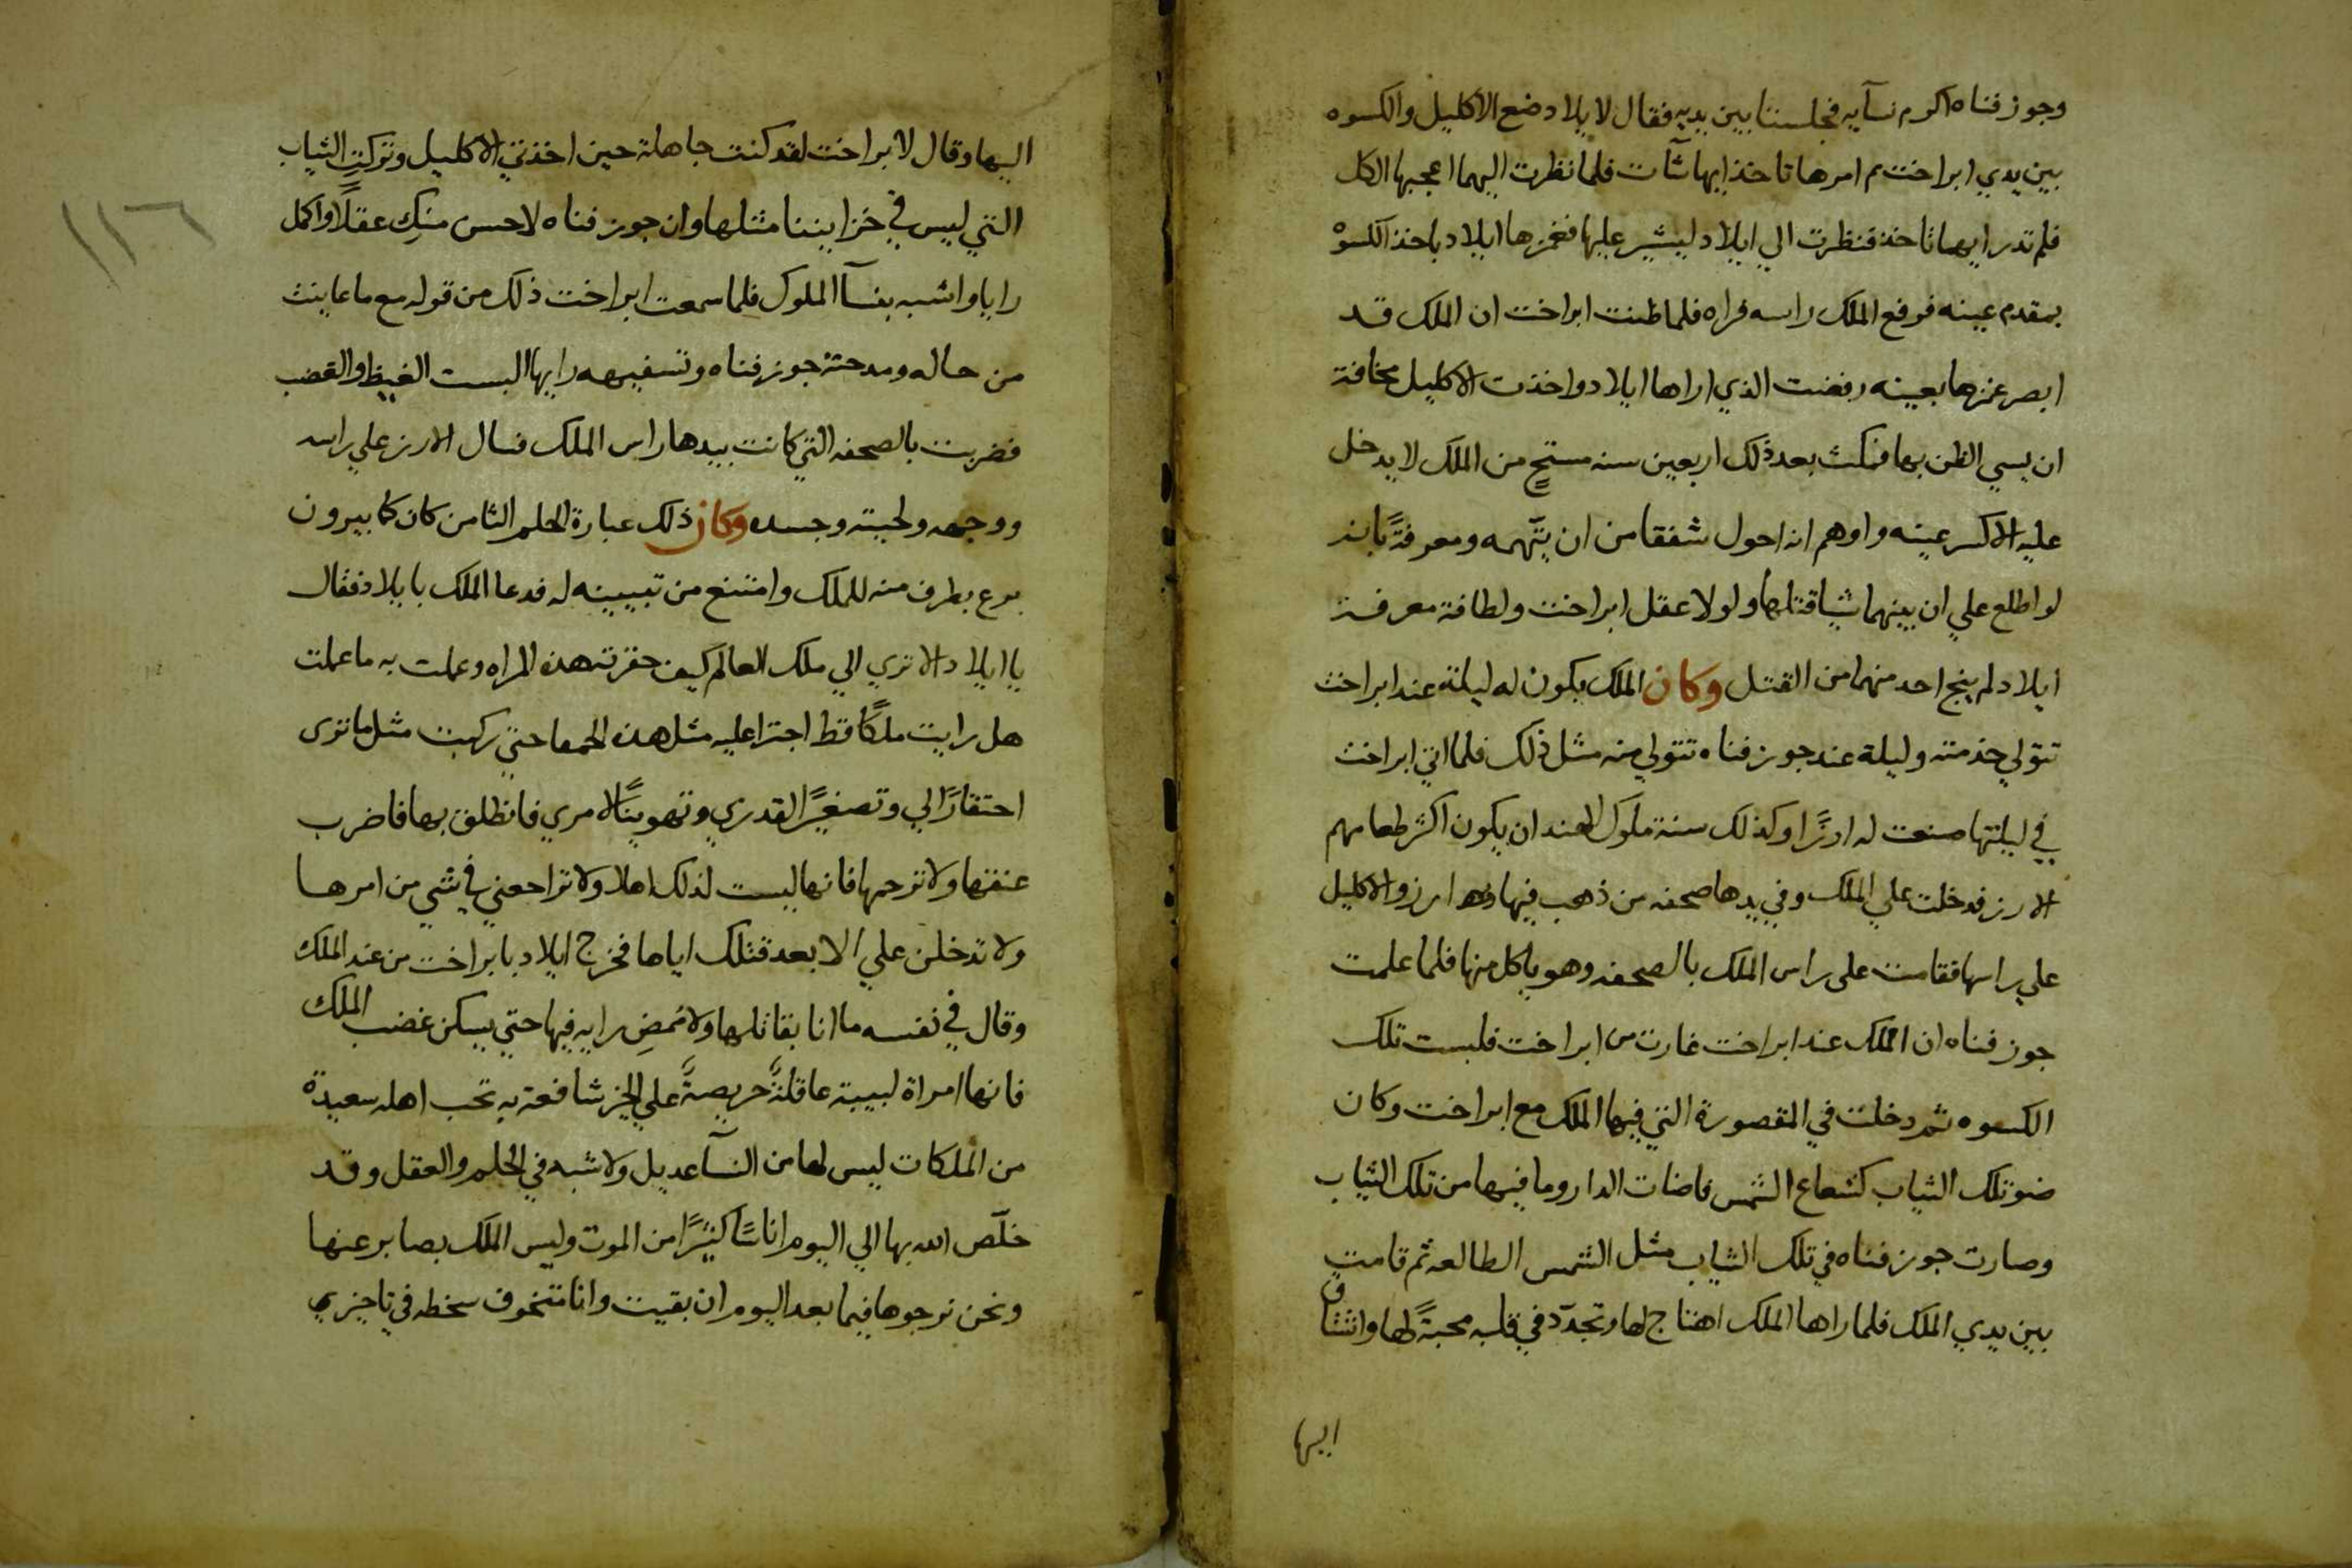 وجوزفناه اكرم نسآيه فجلستا بين يديه فقال لايلاد ضع الاكليل والكسوه
بين يدي ابراخت ثم امرها تاخذ ايهما شآت فلما نظرت اليهما اعجبها الكل
فلم تدر ايهما تاخذ فنظرت الي ايلاد ليشير عليها فغمزها ايلاد باخذ الكسوه
بمقدم عينه فرفع الملك راسه فراه فلما ظنت ابراخت ان الملك قد
ابصر غمزها بعينه رفضت الذي اراها ايلاد واخذت الاكليل مخافة
ان يسي الظن بها فمكث بعد ذلك اربعين سنه مستحٍ من الملك لا يدخل
عليه الا كسر عينه واوهم انه احول شفقا من ان يتّهمه ومعرفةً بانه
لو اطلع علي ان بينهما شيا قتلهما ولولا عقل ابراخت ولطافة معرفة
ايلاد لم ينج احد منهما من القتل وكان الملك يكون له ليلة عند ابراخت
تتولي خدمته وليلة عند جوزفناه تتولي منه مثل ذلك فلما اتي ابراخت
في ليلتها صنعت له ارزًا وكذلك سنة ملوك الهند ان يكون اكثر طعامهم
الارز فدخلت علي الملك وفي يدها صحفه من ذهب فيها ارز والاكليل
علي راسها فقامت على راس الملك بالصحفه وهو ياكل منها فلما علمت
جوزفناه ان الملك عند ابراخت غارت من ابراخت فلبست تلك
الكسوه ثم دخلت في المقصورة التي فيها الملك مع ابراخت وكان
ضو تلك الثياب كشعاع الشمس فاضات الدار وما فيها من تلك الثياب
وصارت جوزفناه في تلك الثياب مثل الشمس الطالعه ثم قامت
بين يدي الملك فلما راها الملك اهتاج لها وتجدّد في قلبه محبةً لها واشتاق
اليها
اليها وقال لابراخت لقد كنت جاهلة حين اخذتي الاكليل وتركتِ الثياب
التي ليس في خزايننا مثلها وان جوزفناه لاحسن منكِ عقلًا واكمل
رايا واشبه بنسآ الملوك فلما سمعت ابراخت ذلك من قوله مع ما عاينت
من حاله ومدحته جوزفناه وتسفيهه رايها البست الغيظ والغضب
فضربت بالصحفه التي كانت بيدها راس الملك فسال الارز علي راسه
ووجهه ولحيته وجسده وكان ذلك عبارة الحلم الثامن كان كابيرون
برع بطرف منه للملك وامتنع من تبيينه له فدعا الملك بايلاد فقال
يا ايلاد الا تري الي ملك العالم كيف حقرته هذه المراه وعملت به ما عملت
هل رايت ملكًا قط اجترا عليه مثل هذه الحمقا حتي ركبت مثل ما ترى
احتقارًا لي وتصغيرًا لقدري وتهوينًا لامري فانطلق بها فاضرب
عنقها ولا ترحمها فانها ليست لذلك اهلا ولا تراجعني في شي من امرها
ولا تدخلن علي الا بعد قتلك اياها فخرج ايلاد بابراخت من عند الملك
وقال في نفسه ما انا بقاتلها ولا ممضٍ رايه فيها حتي يسكن غضب الملك
فانها امراة لبيبة عاقلةً حريصةً علي الخير شافعة به تحب اهله سعيدة
من الملكات ليس لها من النسآ عديل ولا شبه في الحلم والعقل وقد
خلّص الله بها الي اليوم اناسًا كثيرًا من الموت وليس الملك بصابر عنها
ونحن نرجوها فيما بعد اليوم ان بقيت وانا متخوف سخطه في تاخيري
١١٦